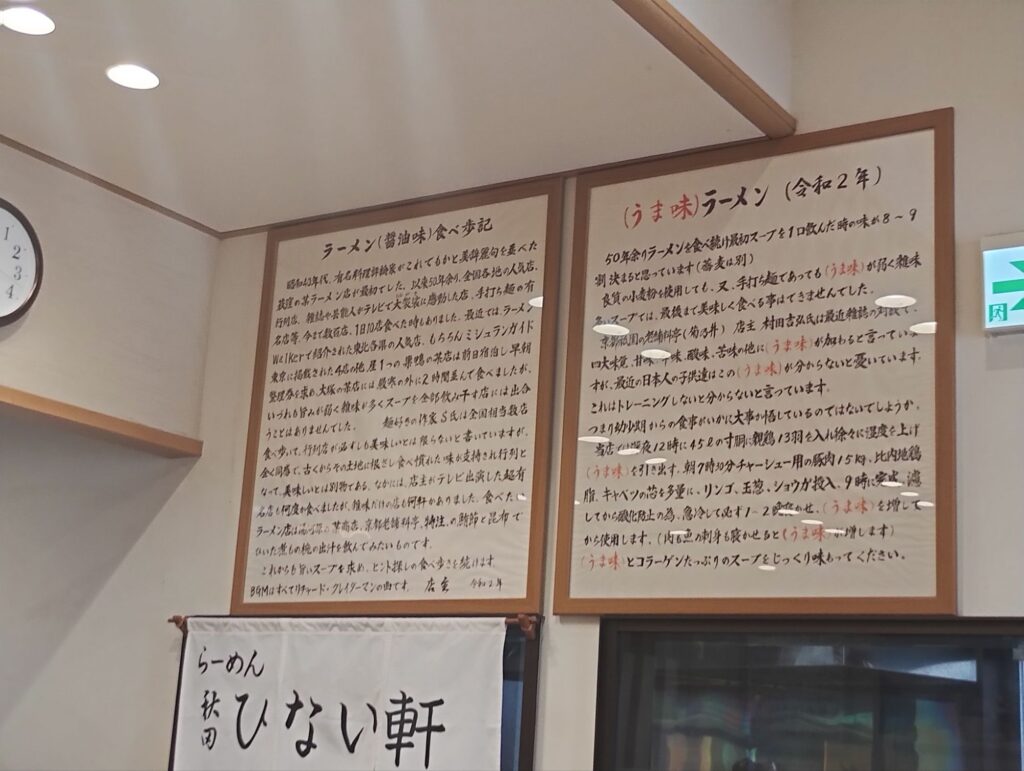 ラーメン(醤油味)食べ歩記
昭和43年代、有名料理評論家がこれでもかと美辞麗句を並べた
荻窪の某ラーメン店が最初でした。以来50年余り、全国各地の人気店、
行列店、雑誌や芸能人がテレビで大袈裟に感動した店、手打ち麺の有
名店等、今まで数百店、1日10店食べた時もありました。最近では、ラーメン
Walkerで紹介された東北各県の人気店、もちろんミシュランガイド
東京に掲載された4店の他、星1つの巣鴨の某店は前日宿泊し早朝
整理券を求め、大阪の某店には厳寒の外に2時間並んで食べましたが、
いづれも旨みが弱く雑味が多くスープを全部飲み干す店には出合
うことはありませんでした。 麺好きの作家S氏は全国相当数店
食べ歩いて、行列店が必ずしも美味しいとは限らないと書いていますが、
全く同感で、古くからその土地に根ざし食べ慣れた味が支持され行列と
なって、美味しいとは別物である。なかには、店主がテレビ出演した超有
名店も何度か食べましたが、雑味だけの店も何軒かありました。食べたい
ラーメン店は 某商店、京都老舗料亭、特注の鮪節と昆布で
ひいた煮もの椀の出汁を飲んでみたいものです。
これからも旨いスープを求め、ヒント探しの食べ歩きを続けます。
BGMはすべてリチャード・クレイダーマンの曲です。 店主 令和2年
(うま味)ラーメン (令和2年)
50年余りラーメンを食べ続け最初スープを1口飲んだ時の味が8~9
割決まると思っています(蕎麦は別)
良質の小麦粉を使用しても、又、手打ち麺であっても(うま味)が弱く雑味
多いスープでは、最後まで美味しく食べる事はできませんでした。
京都祇園の老舗料亭(菊乃井) 店主 村田吉弘氏は最近雑誌の対談で、
四大味覚、甘味、 味、酸味、苦味の他に(うま味)が加わると言っていま
すが、最近の日本人の子供達はこの(うま味)が分からないと憂いています。
これはトレーニングしないと分からないと言っています。
つまり幼少期からの食事がいかに大事か指しているのではないでしょうか。
当店では深夜12時に45ℓの寸胴に親鶏13羽を入れ徐々に温度を上げ
(うま味)を引き出す。朝7時30分チャーシュー用の豚肉15kg、比内地鶏
脂、キャベツの芯を多量に、リンゴ、玉葱、ショウガ投入、9時に完成、濾
してから酸化防止の為、急冷して必ず1~2晩寝かせ、(うま味)を増して
から使用します。(肉も魚の刺身も寝かせると(うま味)が増します)
(うま味)とコラーゲンたっぷりのスープをじっくり味わってください。
らーめん
秋田
ひない軒
1
2
3
4